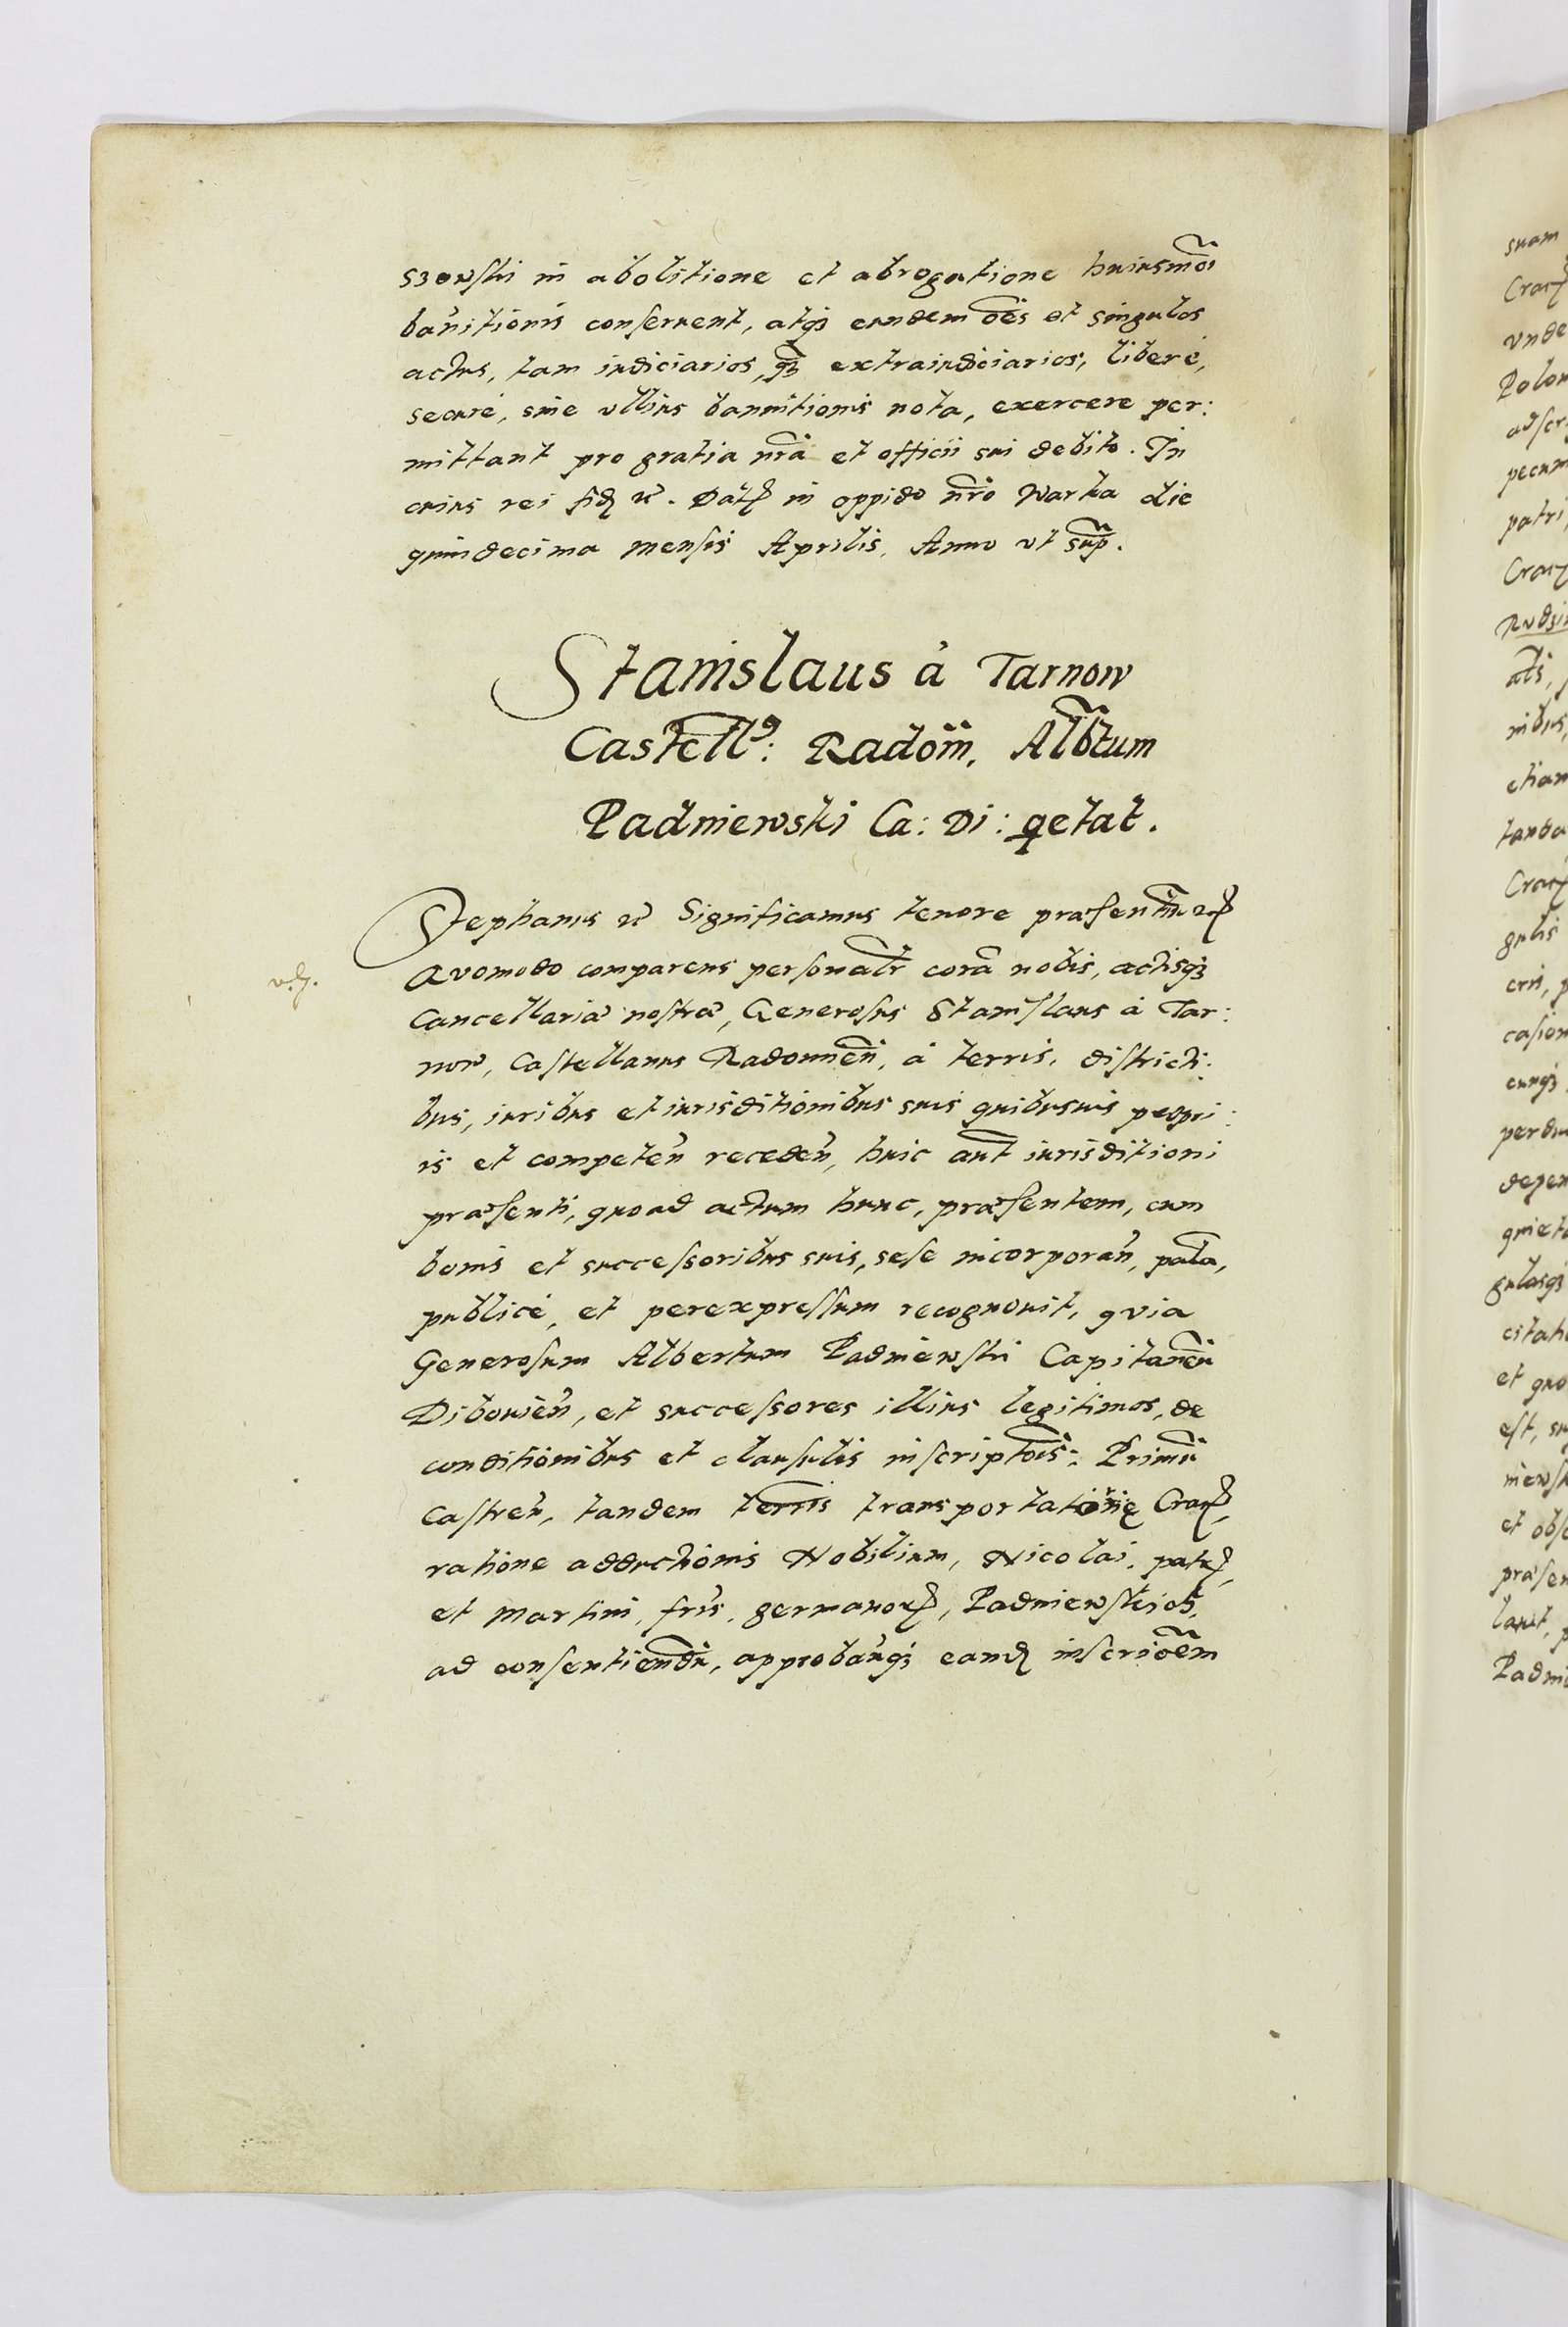 szowski in abolitione et abrogatione huiusmõi
bañitionis conseruent, atq₃ eundem oẽs et singulos
actus, tam iudiciarios, q̃₃ extraiudiciarios, liberè,
securè, sine vllius bannitionis nota, exercere per:
mittant pro gratia nrã et officii sui debito. In
cuius rei fidꝫ ꝛc̃. Datꝫ in oppido nr̃o Warka die
quindecima mensis Aprilis, Anno vt sup̃.
Stanislaus à Tarnow
Castell9: Radom̃, Alb̃tum
Padniewski Ca: Di: qetat.
Stephanus ꝛc̃ Significamus tenore præsentiũ ꝛꝫ
Qvomodo comparens personalr̃ corã nobis, actisq₃
Cancellariæ nostræ, Generosus Stanislaus à Tar:
now, Castellanus Radomieñ, à terris, districti:
bus, iuribus et iurisditionibus suis quibusuis propri:
is et competeñ recedeñ, huic aut̃ iurisditioni
præsenti, quoad actum hunc, præsentem, cum
bonis et successoribus suis, sese incorporañ, palã,
publicè, et perexpressum recognouit, qvia
Generosum Albertum Padniewski Capitaneũ
Diboujeñ, et successores illius legitimos, de
conditionibus et clausulis inscriptoĩs: Primũ
Castreñ, tandem terris̃ transportatioñię Cracꝫ,
ratione adductionis Nobilium, Nicolai, patrꝫ,
et Martini, fr̃is, germanoꝝ, Padniewskich,
ad consentiendũ, approbañq₃ eandꝫ inscriõem
v.ꝫ.
suam
Cracꝫ
vnde
patri
etiam
Cracꝫ
gulis
et quo